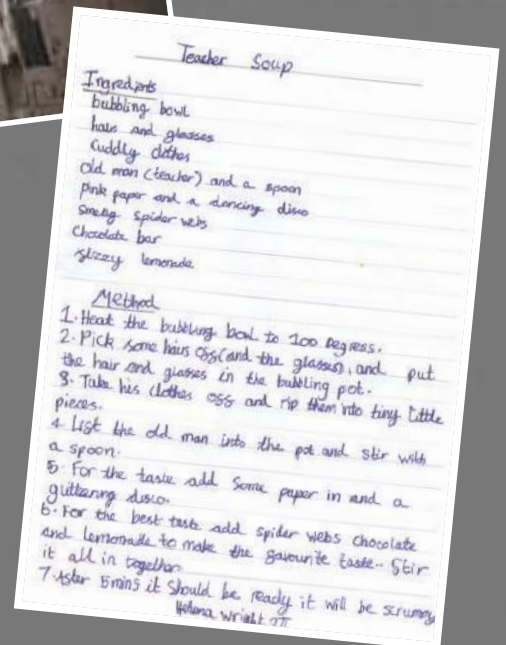 Teacher Soup
Ingredients
bubbling bowl
hairs and glasses
Cuddly clothes
Old man (teacher) and a spoon
Pink paper and a dancing disco
Smelly spider webs
Chocolate bar
fizzy lemonade
Method
1. Heat the bubbling bowl to 100 Degress.
2. Pick some hairs off (and the glasses), and put
the hair and glasses in the bubbling pot.
3. Take his clothes off and rip them into tiny little
pieces.
4 Lift the old man into the pot and stir with
a spoon.
5. For the taste add some paper in and a
glittering disco.
6. For the best taste add spider webs chocolate
and lemonade to make the favourite taste.. Stir
it all in together.
7. After 5 mins it should be ready it will be scrummy
Helena Wright